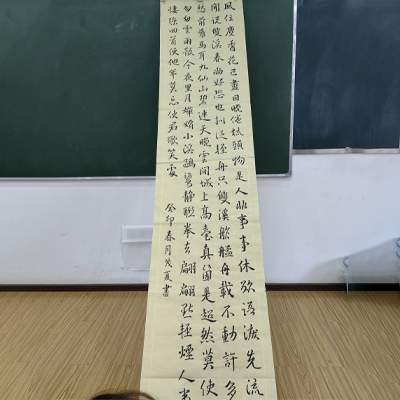 風住塵香花已盡日晚倦梳頭物是人非事事休欲語淚先流
聞說雙溪春尚好恐也擬泛輕舟只雙溪舴艋舟載不動許多
愁前瞻馬耳九仙山碧連天晚雲間城上高臺真箇是超然莫使
匆匆雲雨散今夜里月嬋娟小溪鷗鷺靜聯拳去翩翩點輕煙人事
淒涼回首便他年莫忘使君歌笑處
癸卯春月茂夏書